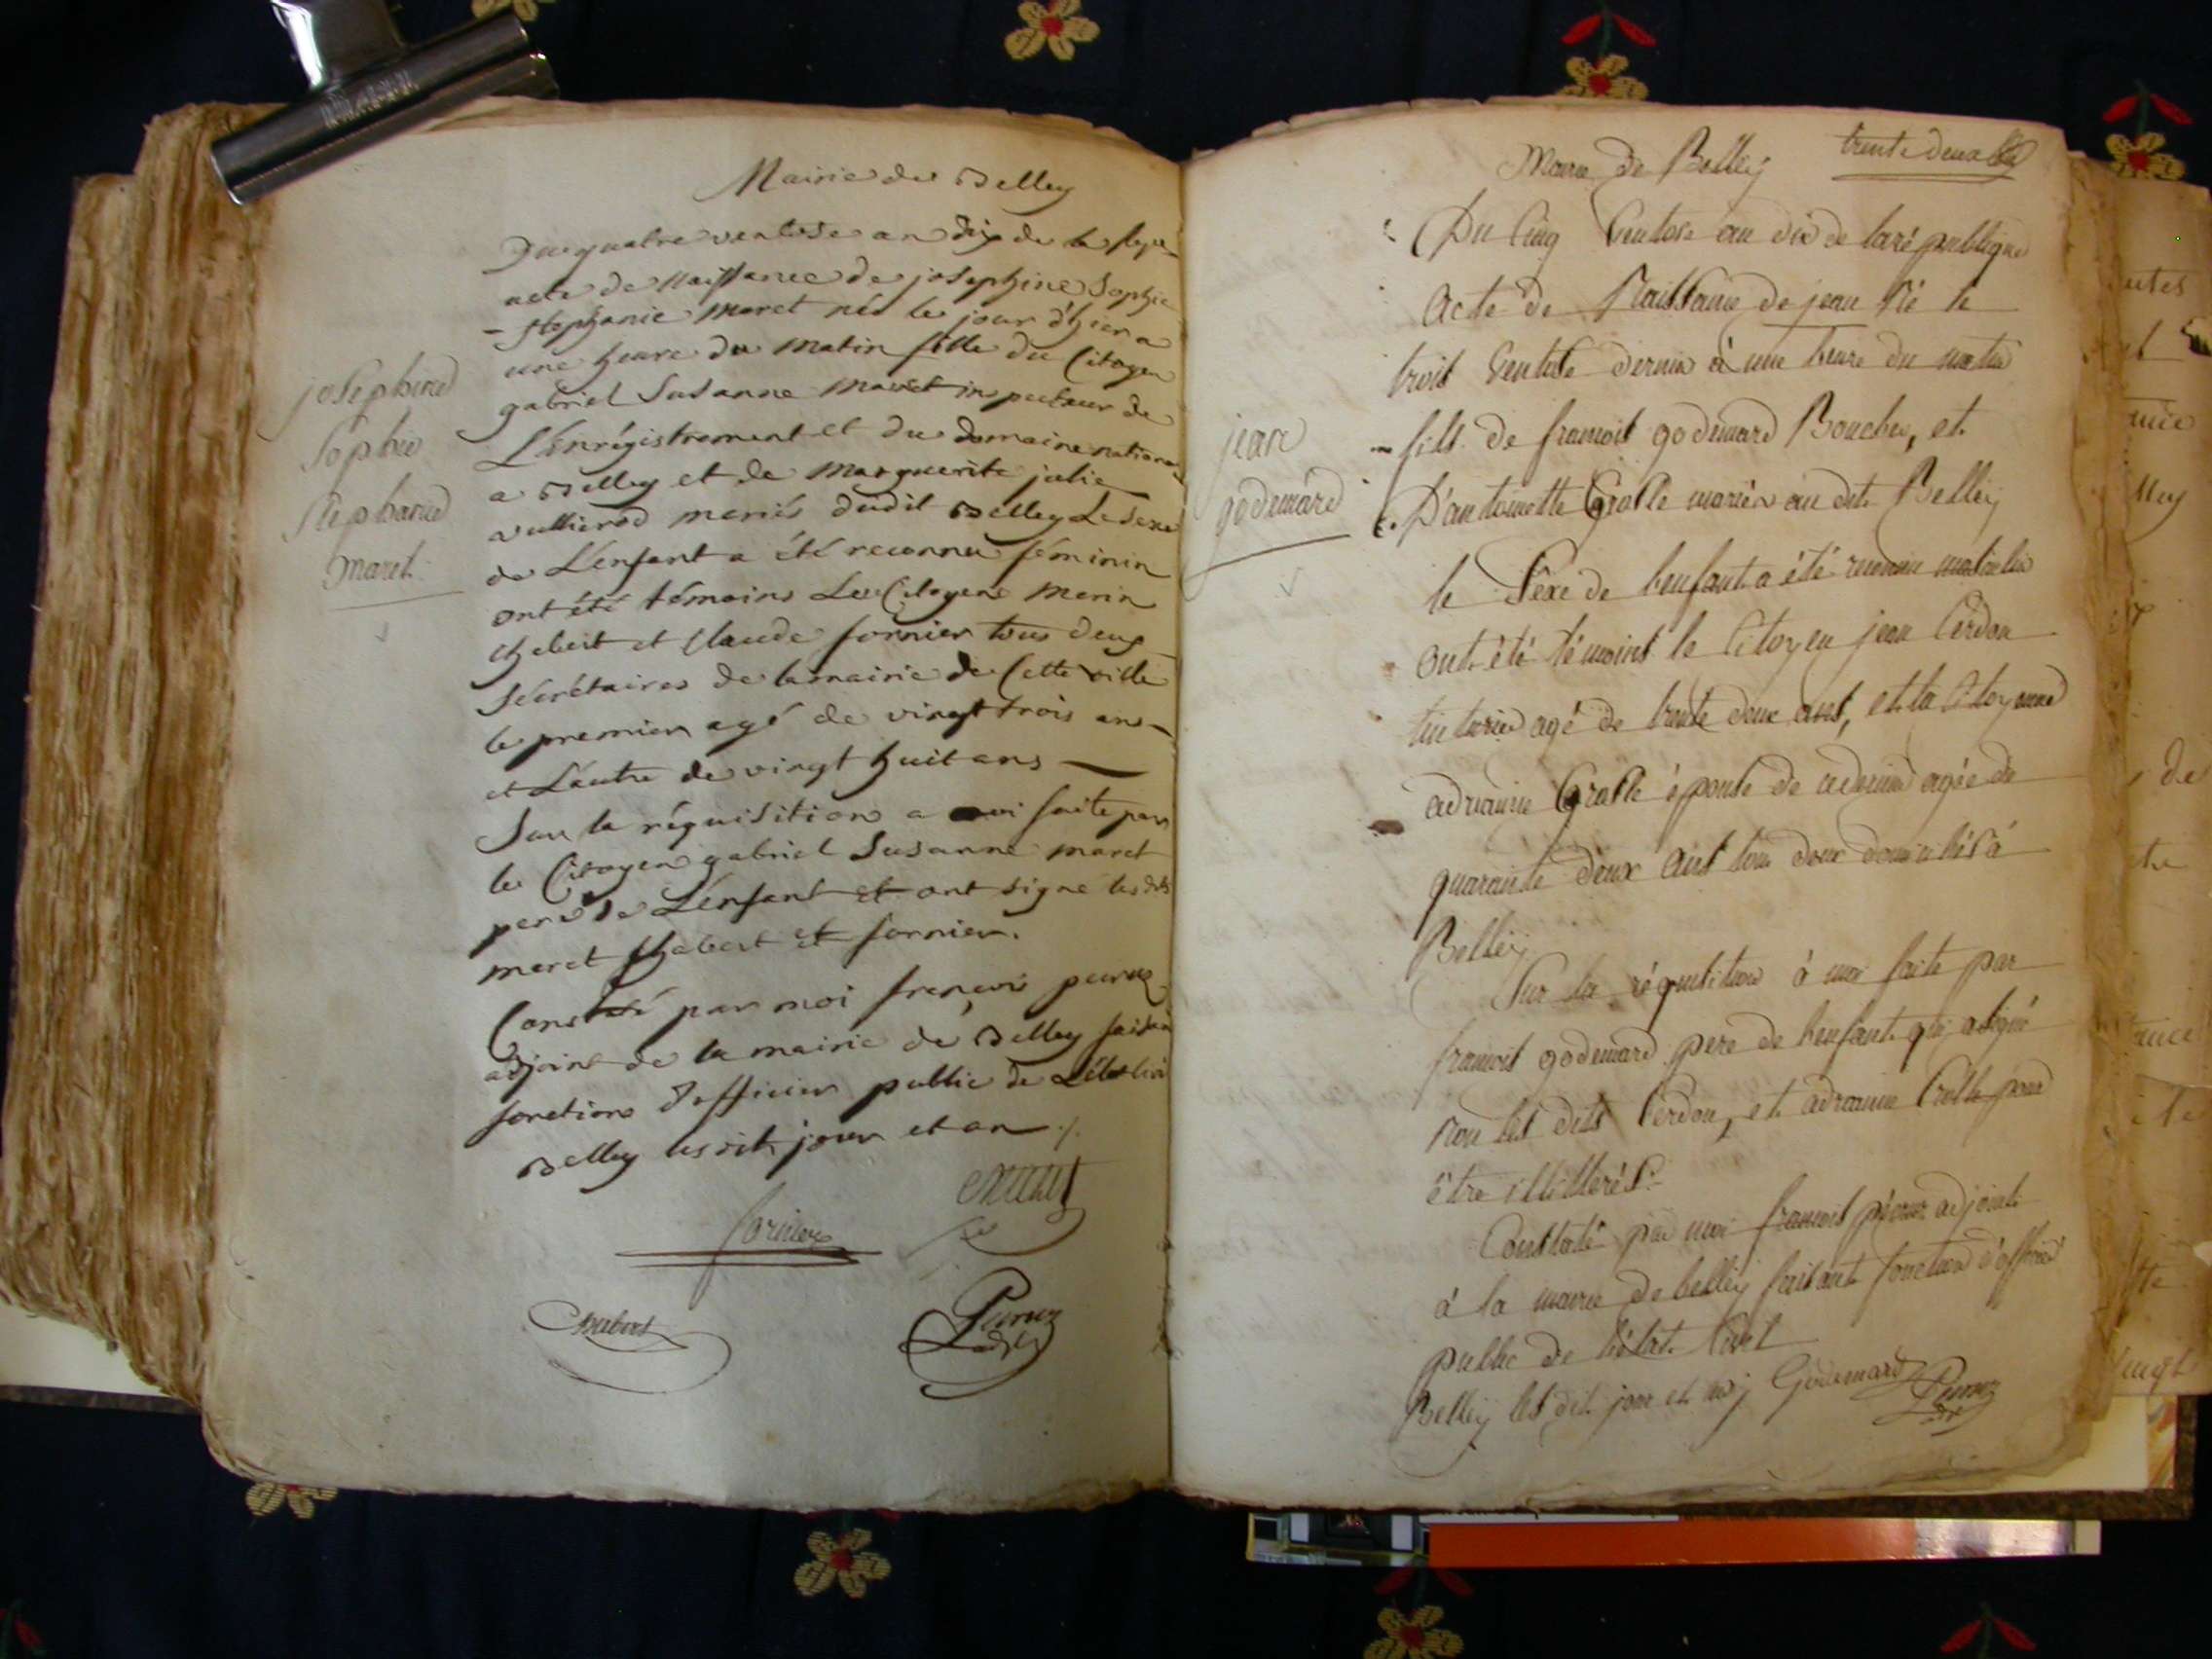 Mairie de Belley
Du quatre ventose an dix de la
acte de Naissance de josephine Sophie
- stephanie maret née le jour d'hier a
une heure du matin fille du Citoyen
gabriel Susanne maret inspecteur de
L'enrégistrement et du domaine national
a Belley et de marguerite julie
mariés dudit Belley Le sexe
de L'enfant a été reconnu féminin
ont été témoins Les Citoyens
et Claude fornier tous deux
secrétaires de la mairie de Cette ville
le premier agé de vingt trois ans -
et L'autre de vingt huit ans
Sur la réquisition a moi faite par
le Citoyen gabriel Susanne maret
pere de L'enfant et ont signé les dits
maret et fornier.
Constaté par moi françois
adjoint de la mairie de Belley faisant
fonctions d'officier public de L'état civil
Belley les dit jour et an ./.
josephine
Sophie
stephanie
maret
fornier
Mairie de Belley
trente deux
Du Cinq Ventose an dix de la république
Acte de Naissance de jean Né le
trois Ventose dernier à une heure du matin
fils de francois godemard Boucher, et
D'antoinette mariés au dit Belley
le Sexe de l'enfant a été reconnu masculin
ont été témoins le Citoyen jean Cerdon
agé de trente deux ans, et la Citoyenne
épouse de agée de
quarante deux ans tous deux domiciliés à
Belley
Sur la réquisition à moi faite par
francois godemard pere de l'enfant qui a signé
non les dits Cerdon, et pour
être illitterés.
Constaté par moi francois adjoint
à la mairie de belley faisant fonction d'officier
public de l'état Civil
Belley les dit jour et Godemard
jean
godemard